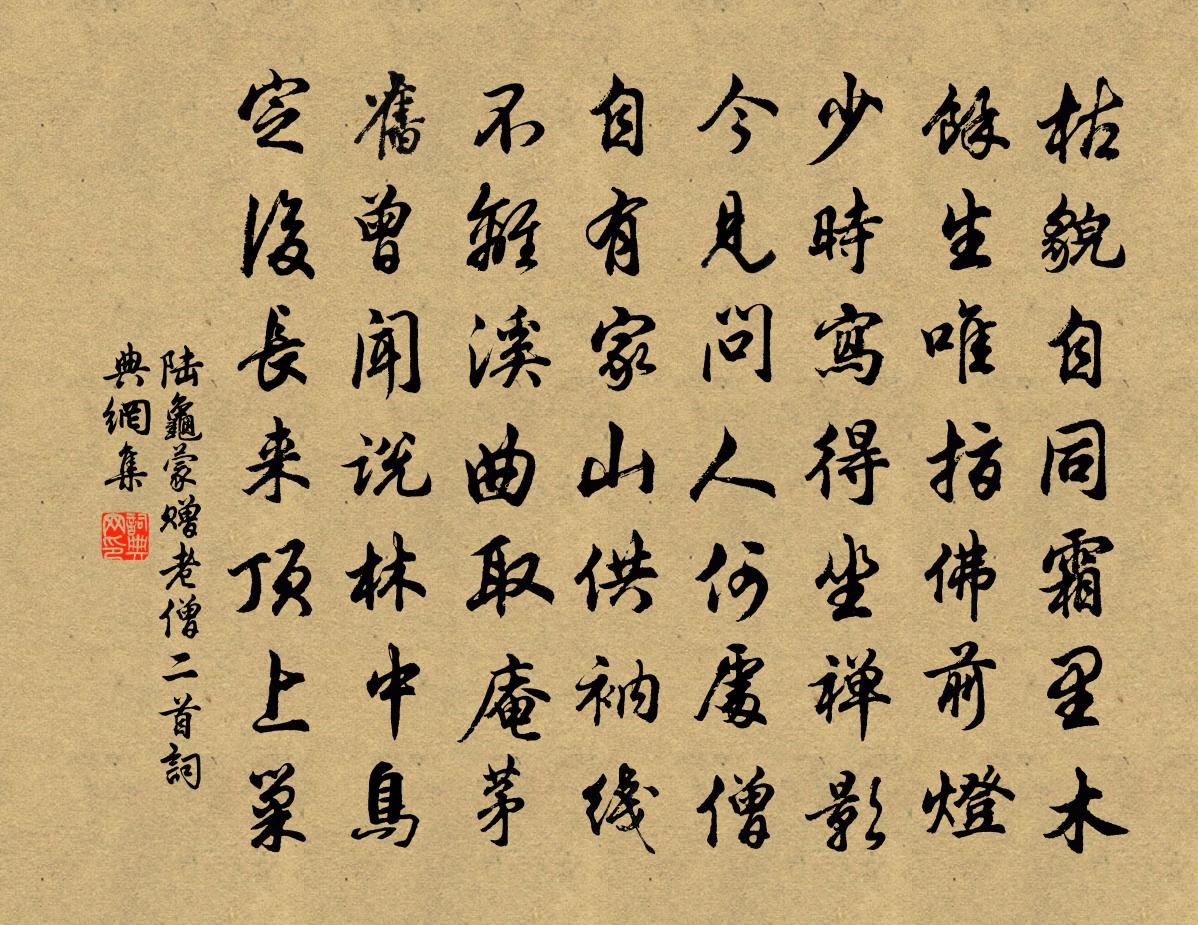 枯貌自同霜里木
餘生唯指佛前燈
少時寫得坐禅影
今見問人何處僧
自有家山供衲线
不離溪曲取庵茅
舊曾闻说林中鳥
定後長来顶上巢
陆龜蒙赠老僧二首詞
典網集
詞典
网印